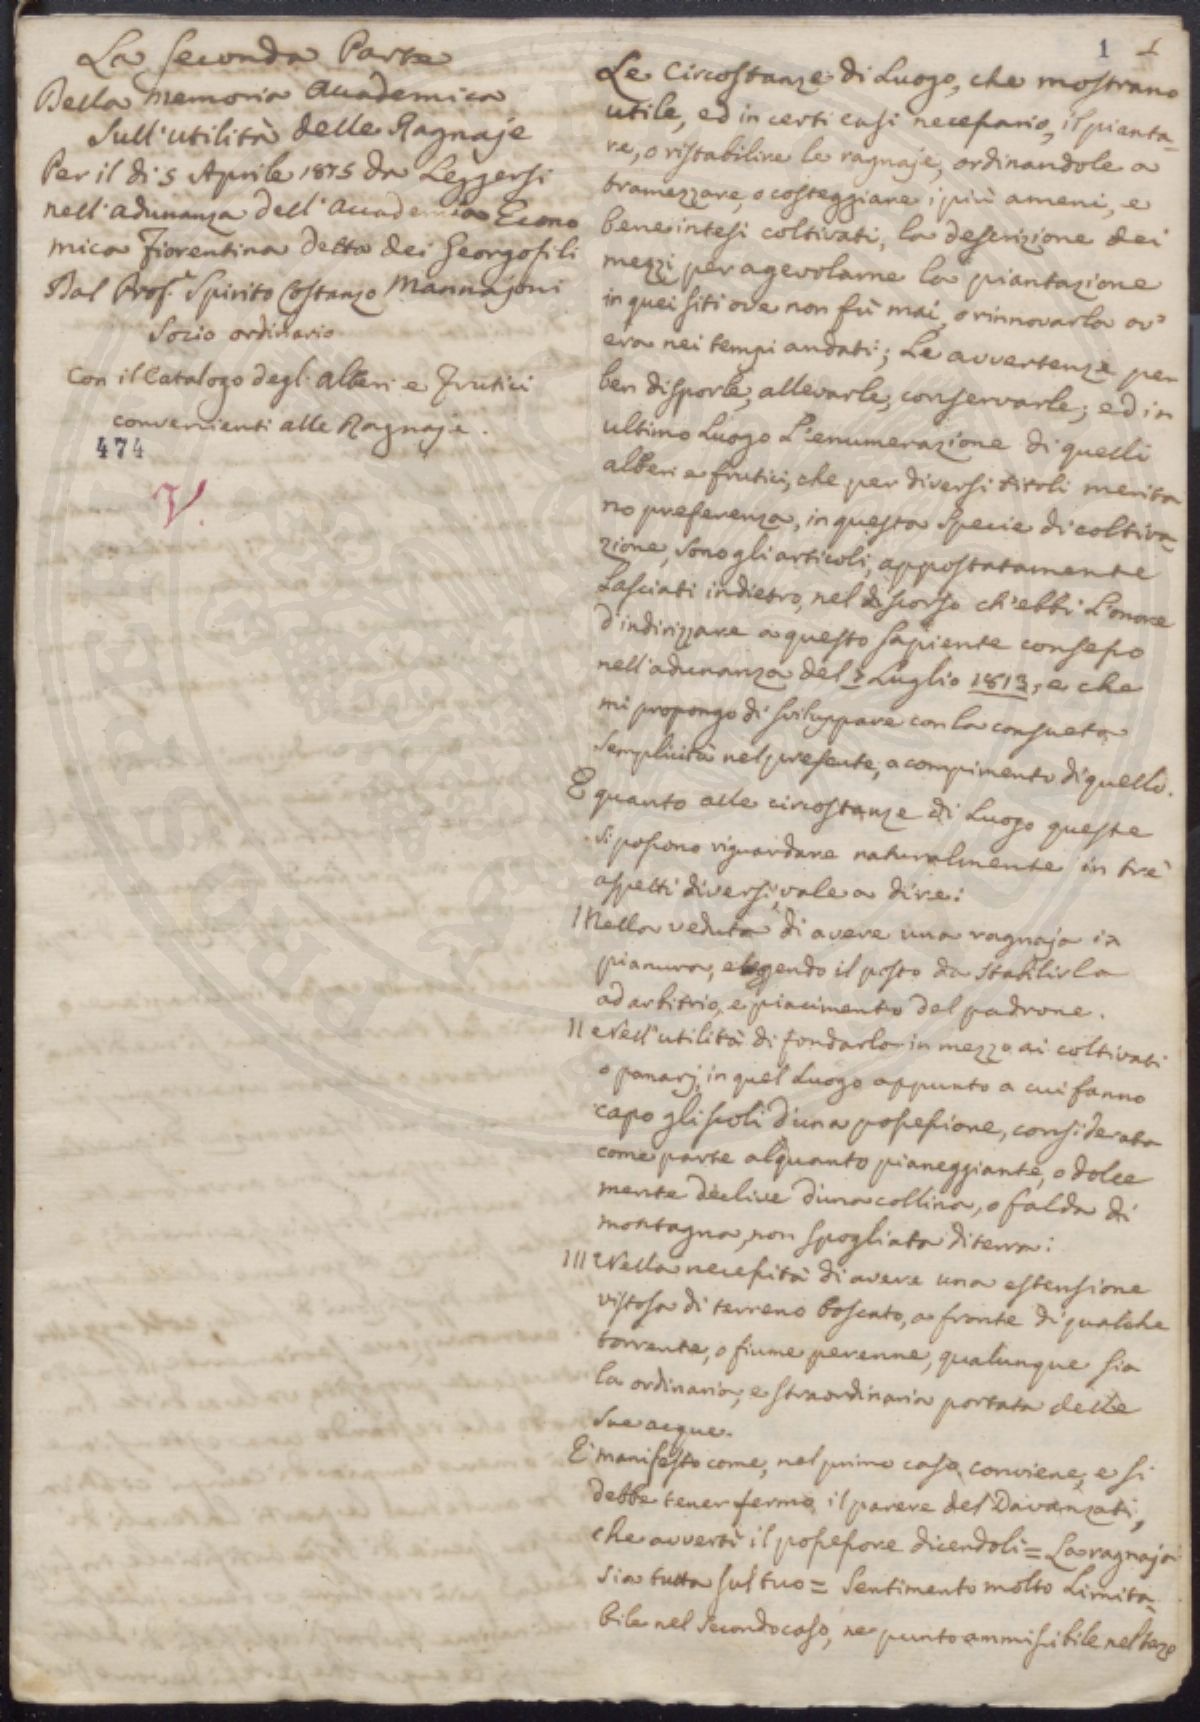 La Seconda Parte
Della Memoria Accademica
Sull'utilità delle Ragnaje
Per il dì 5 Aprile 1815 da Leggersi
nell'adunanza dell'Accademia Econo
mica Fiorentina detta dei Georgofili
Dal Prof.r Spirito Costanzo Mannajoni
Socio ordinario
Con il Catalogo degl'alberi e Frutici
convenienti alle Ragnaje.
474
V.
1 1
Le Circostanze di Luogo, che mostrano
utile, ed in certi casi necessario, il pianta-
re, o ristabilire le ragnaje, ordinandole a
tramezzare, o costeggiare i più ameni, e
bene intesi coltivati, la descrizione dei
mezzi per agevolarne la piantazione
in quei siti ove non fù mai, o rinnovarla ov'
era nei tempi andati; Le avvertenze per
ben disporle, allevarle, conservarle; ed in
ultimo Luogo L'enumerazione di quelli
alberi e frutici, che per diversi titoli merita
no preferenza, in questa Specie di coltiva-
zione, sono gli articoli, appostatamente
Lasciati indietro, nel discorso ch'ebbi L'onore
d'indirizzare a questo sapiente consesso
nell'adunanza del 7 Luglio 1813, e che
mi propongo di sviluppare con la consueta
semplicità nel presente, a compimento di quello.
E quanto alle circostanze di Luogo queste
si possono riguardare naturalmente in trè
aspetti diversi, vale a dire:
I Nella veduta di avere una ragnaja in
pianura, eleggendo il posto da stabilirla
ad arbitrio, e piacimento del padrone.
II Nell'utilità di fondarla in mezzo ai coltivati
o panarj, in quel Luogo appunto a cui fanno
capo gli scoli d'una possessione, considerata
come parte alquanto pianeggiante, o dolce
mente declive d'una collina, o falda di
montagna, non spogliata di terra:
III Nella necessità di avere una estensione
vistosa di terreno boscato, a fronte di qualche
torrente, o fiume perenne, qualunque sia
la ordinaria, e straordinaria portata delle
sue acque.
E' manifesto come, nel primo caso, conviene, e si
debbe tener fermo, il parere del Davanzati,
che avvertì il possessore dicendoli = La ragnaja
sia tutta sul tuo = Sentimento molto Limita-
bile nel Secondo caso, nè punto ammissibile nel terzo